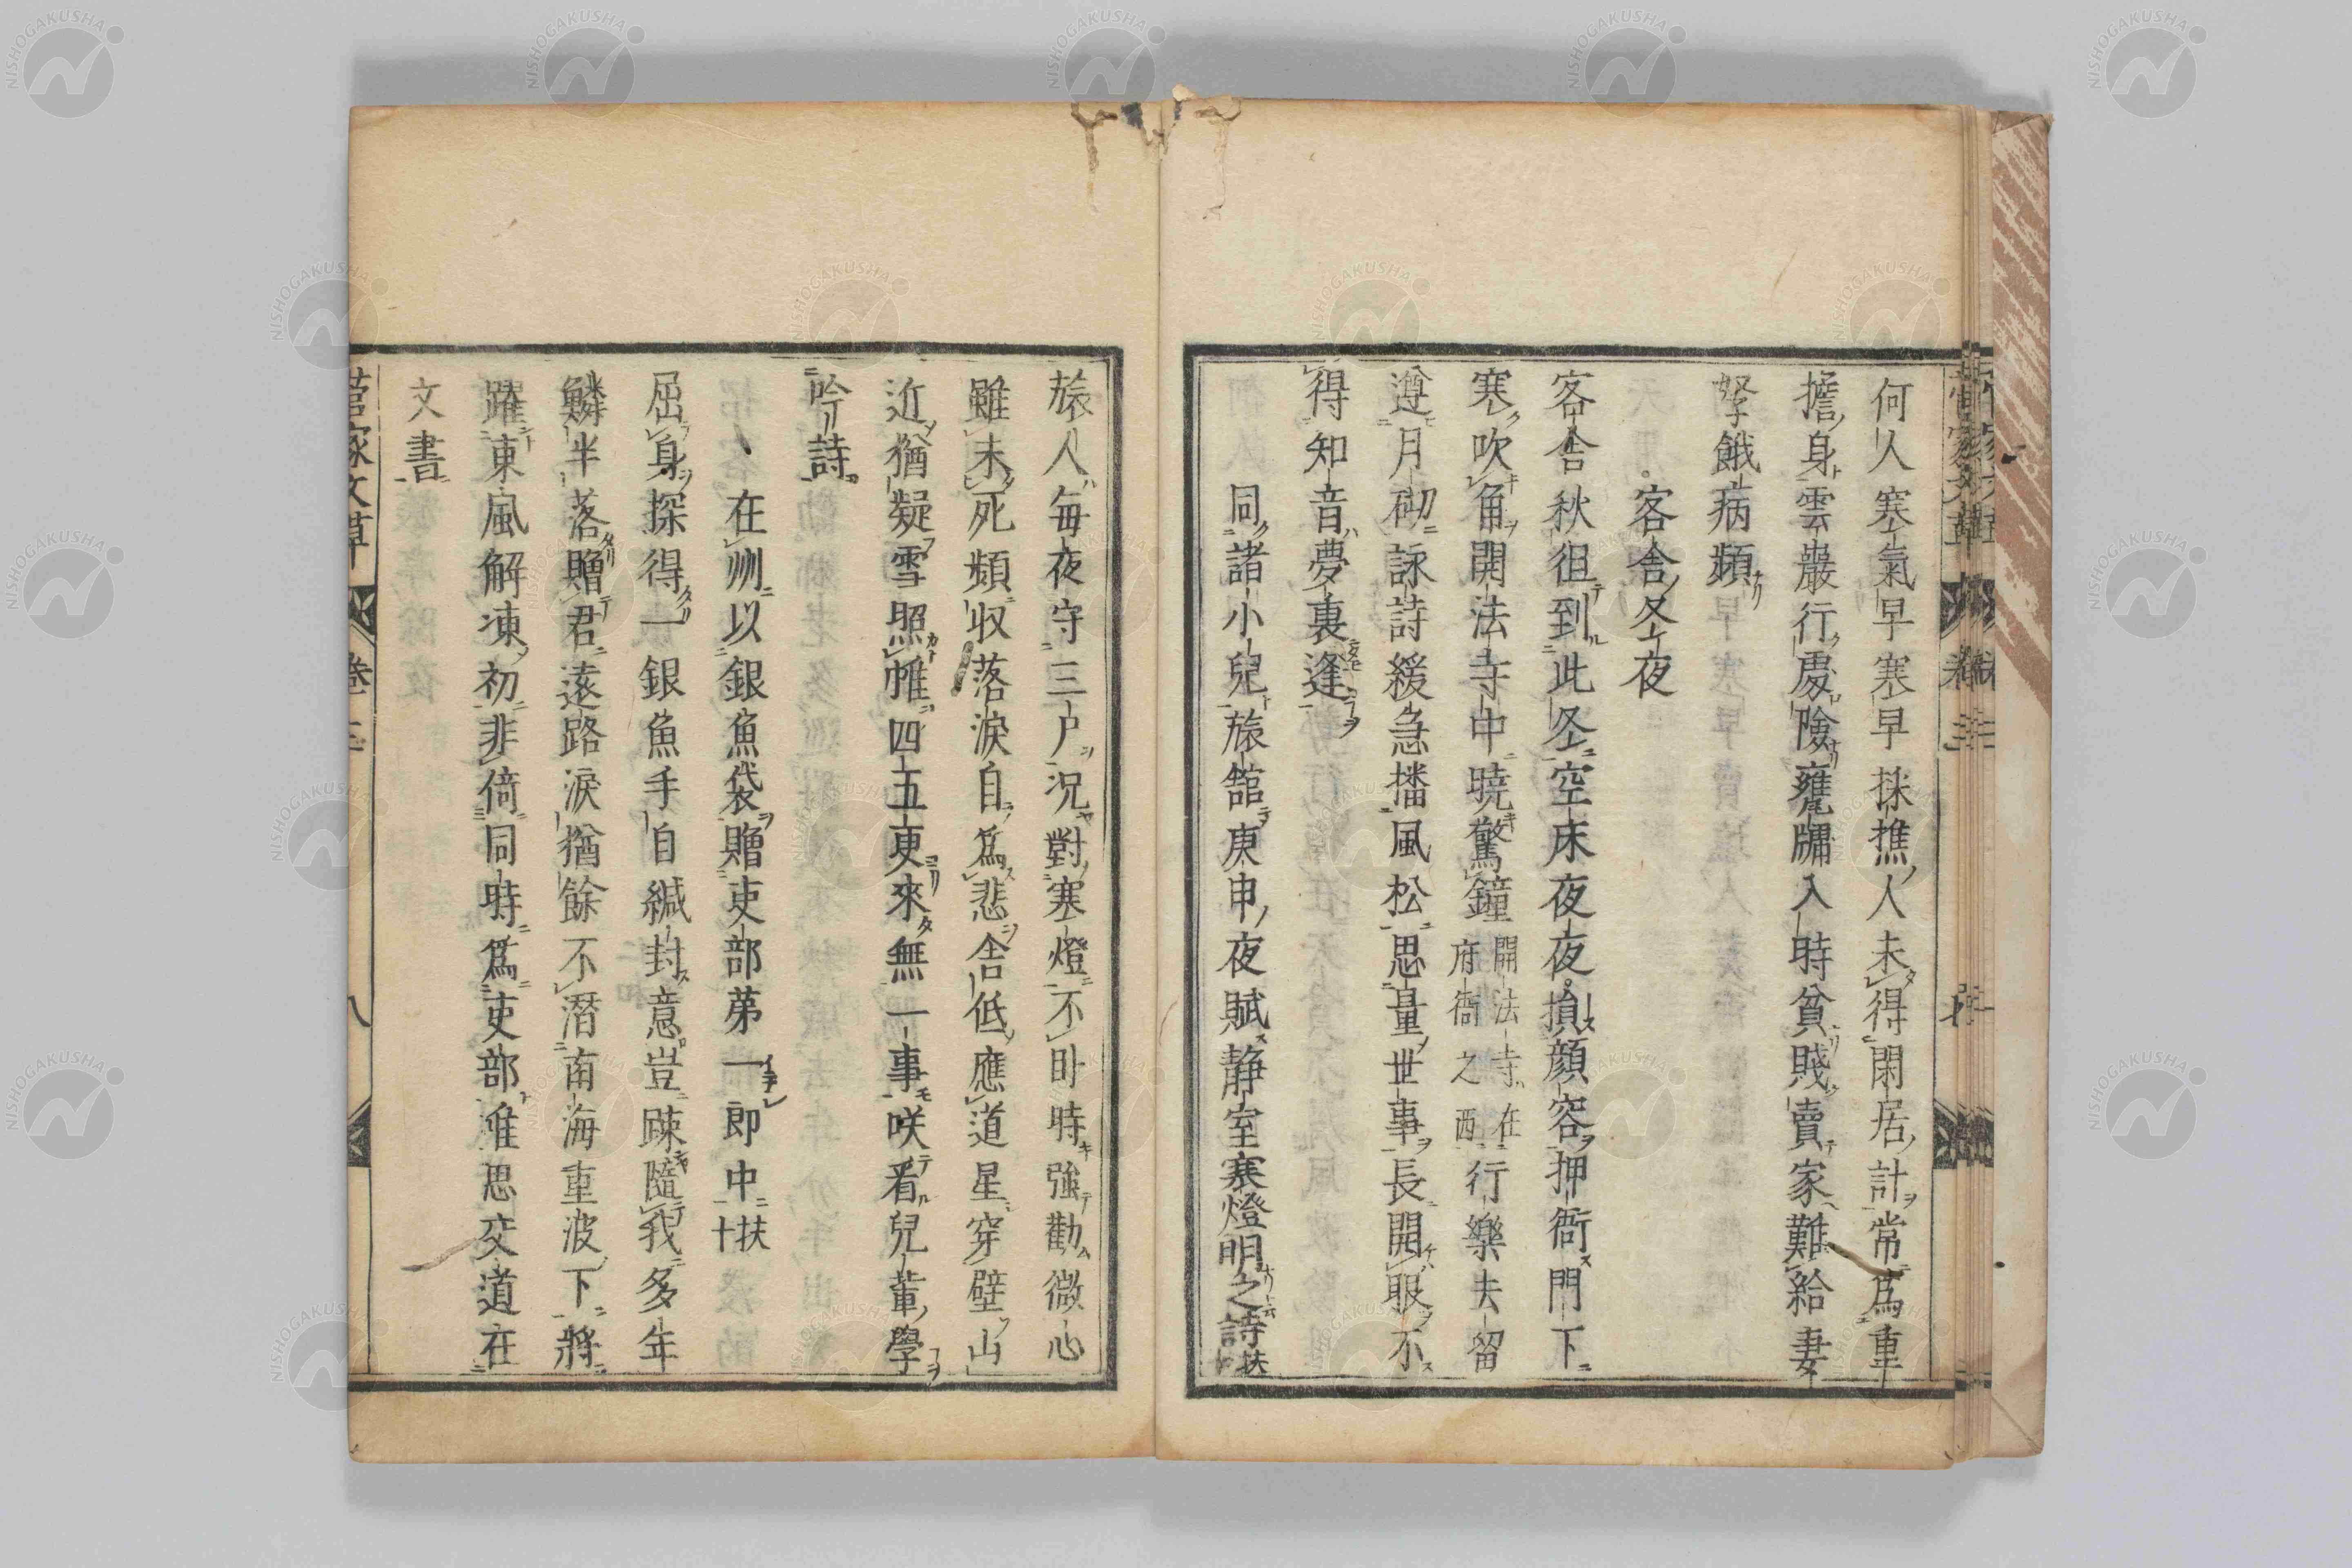 何人寒氣早寒早採樵人未得閑居計常爲重
擔身雲巖行處險甕牖入時貧賤賣家難給妻
孥餓病頻
客舎冬夜
客舎秋徂到此冬空床夜夜損顔容押衙門下
寒吹角開法寺中曉驚鐘開法寺在府衙之西行樂去留
遵月砌詠詩緩急播風松思量世事長開眼不
得知音夢裏逢
同諸小兒旅館庚申夜賦靜室寒燈明之詩
旅人每夜守三尸況對寒燈不臥時強勸微心
雖未死頻収落淚自爲悲舎低應道星穿壁山
近猶疑雪照帷四五更來無一事咲看兒輩學
吟詩
在州以銀魚袋贈吏部第一郎中扶十
屈身探得一銀魚手自緘封意豈踈隨我多年
鱗半落贈君遠路淚猶餘不潛南海重波下將
躍東風解凍初非倚同時爲吏部唯思交道在
文書
菅家文草 卷三 八